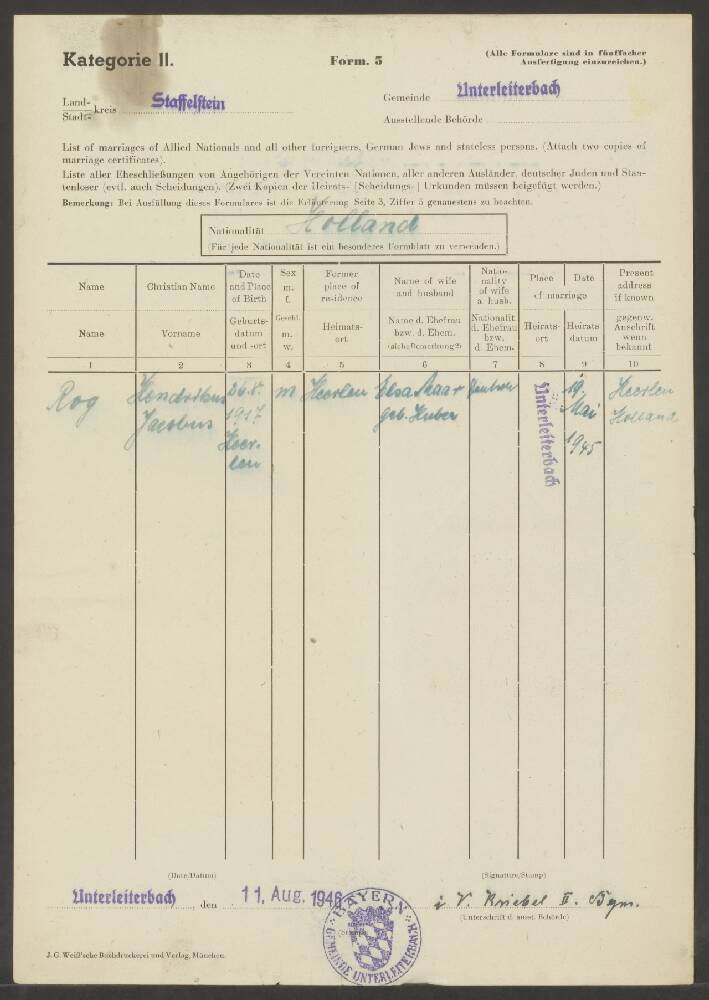 Kategorie II.
Form. 5
(Alle Formulare sind in fünffacher
Ausfertigung einzureichen.)
Land-
Stadt- kreis Staffelstein
Gemeinde Unterleiterbach
Ausstellende Behörde
List of marriages of Allied Nationals and all other foreigners, German Jews and stateless persons. (Attach two copies of
marriage certificates).
Liste aller Eheschließungen von Angehörigen der Vereinten Nationen, aller anderen Ausländer, deutscher Juden und Staa-
tenloser (evtl. auch Scheidungen). (Zwei Kopien der Heirats- [Scheidungs-] Urkunden müssen beigefügt werden.)
Bemerkung: Bei Ausfüllung dieses Formulares ist die Erläuterung Seite 3, Ziffer 5 genauestens zu beachten.
Nationalität Holland
(Für jede Nationalität ist ein besonderes Formblatt zu verwenden.)
Name
Christian Name
Date
and Place
of Birth
Sex
m.
f.
Former
place of
residence
Name of wife
and husband
Natio-
nality
of wife
a. husb.
Place
Date
of marriage
Present
address
if known
Name
Vorname
Geburts-
datum
und -ort
Geschl.
m.
w.
Heimats-
ort
Name d. Ehefrau
bzw. d. Ehem.
(siehe Bemerkung 2)
Nationalit.
d. Ehefrau
bzw.
d. Ehem.
Heirats-
ort
Heirats-
datum
gegenw.
Anschrift
wenn
bekannt
1 2 3 4 5 6 7 8 9 10
Rog
Hendrikus
Jacobus
26.8.
1917
Heer-
len
m
Heerlen
Elsa
geb. Huber
Unterleiterbach
19.
Mai
1945
Heerlen
Holland
(Date/Datum)
Unterleiterbach, den 11. Aug. 1946
(Signature/Stamp)
i. V. Kriebel II. Bgm.
(Unterschrift d. ausst. Behörde)
BAYERN
GEMEINDE UNTERLEITERBACH
J. G. Weiß'sche Buchdruckerei und Verlag, München.